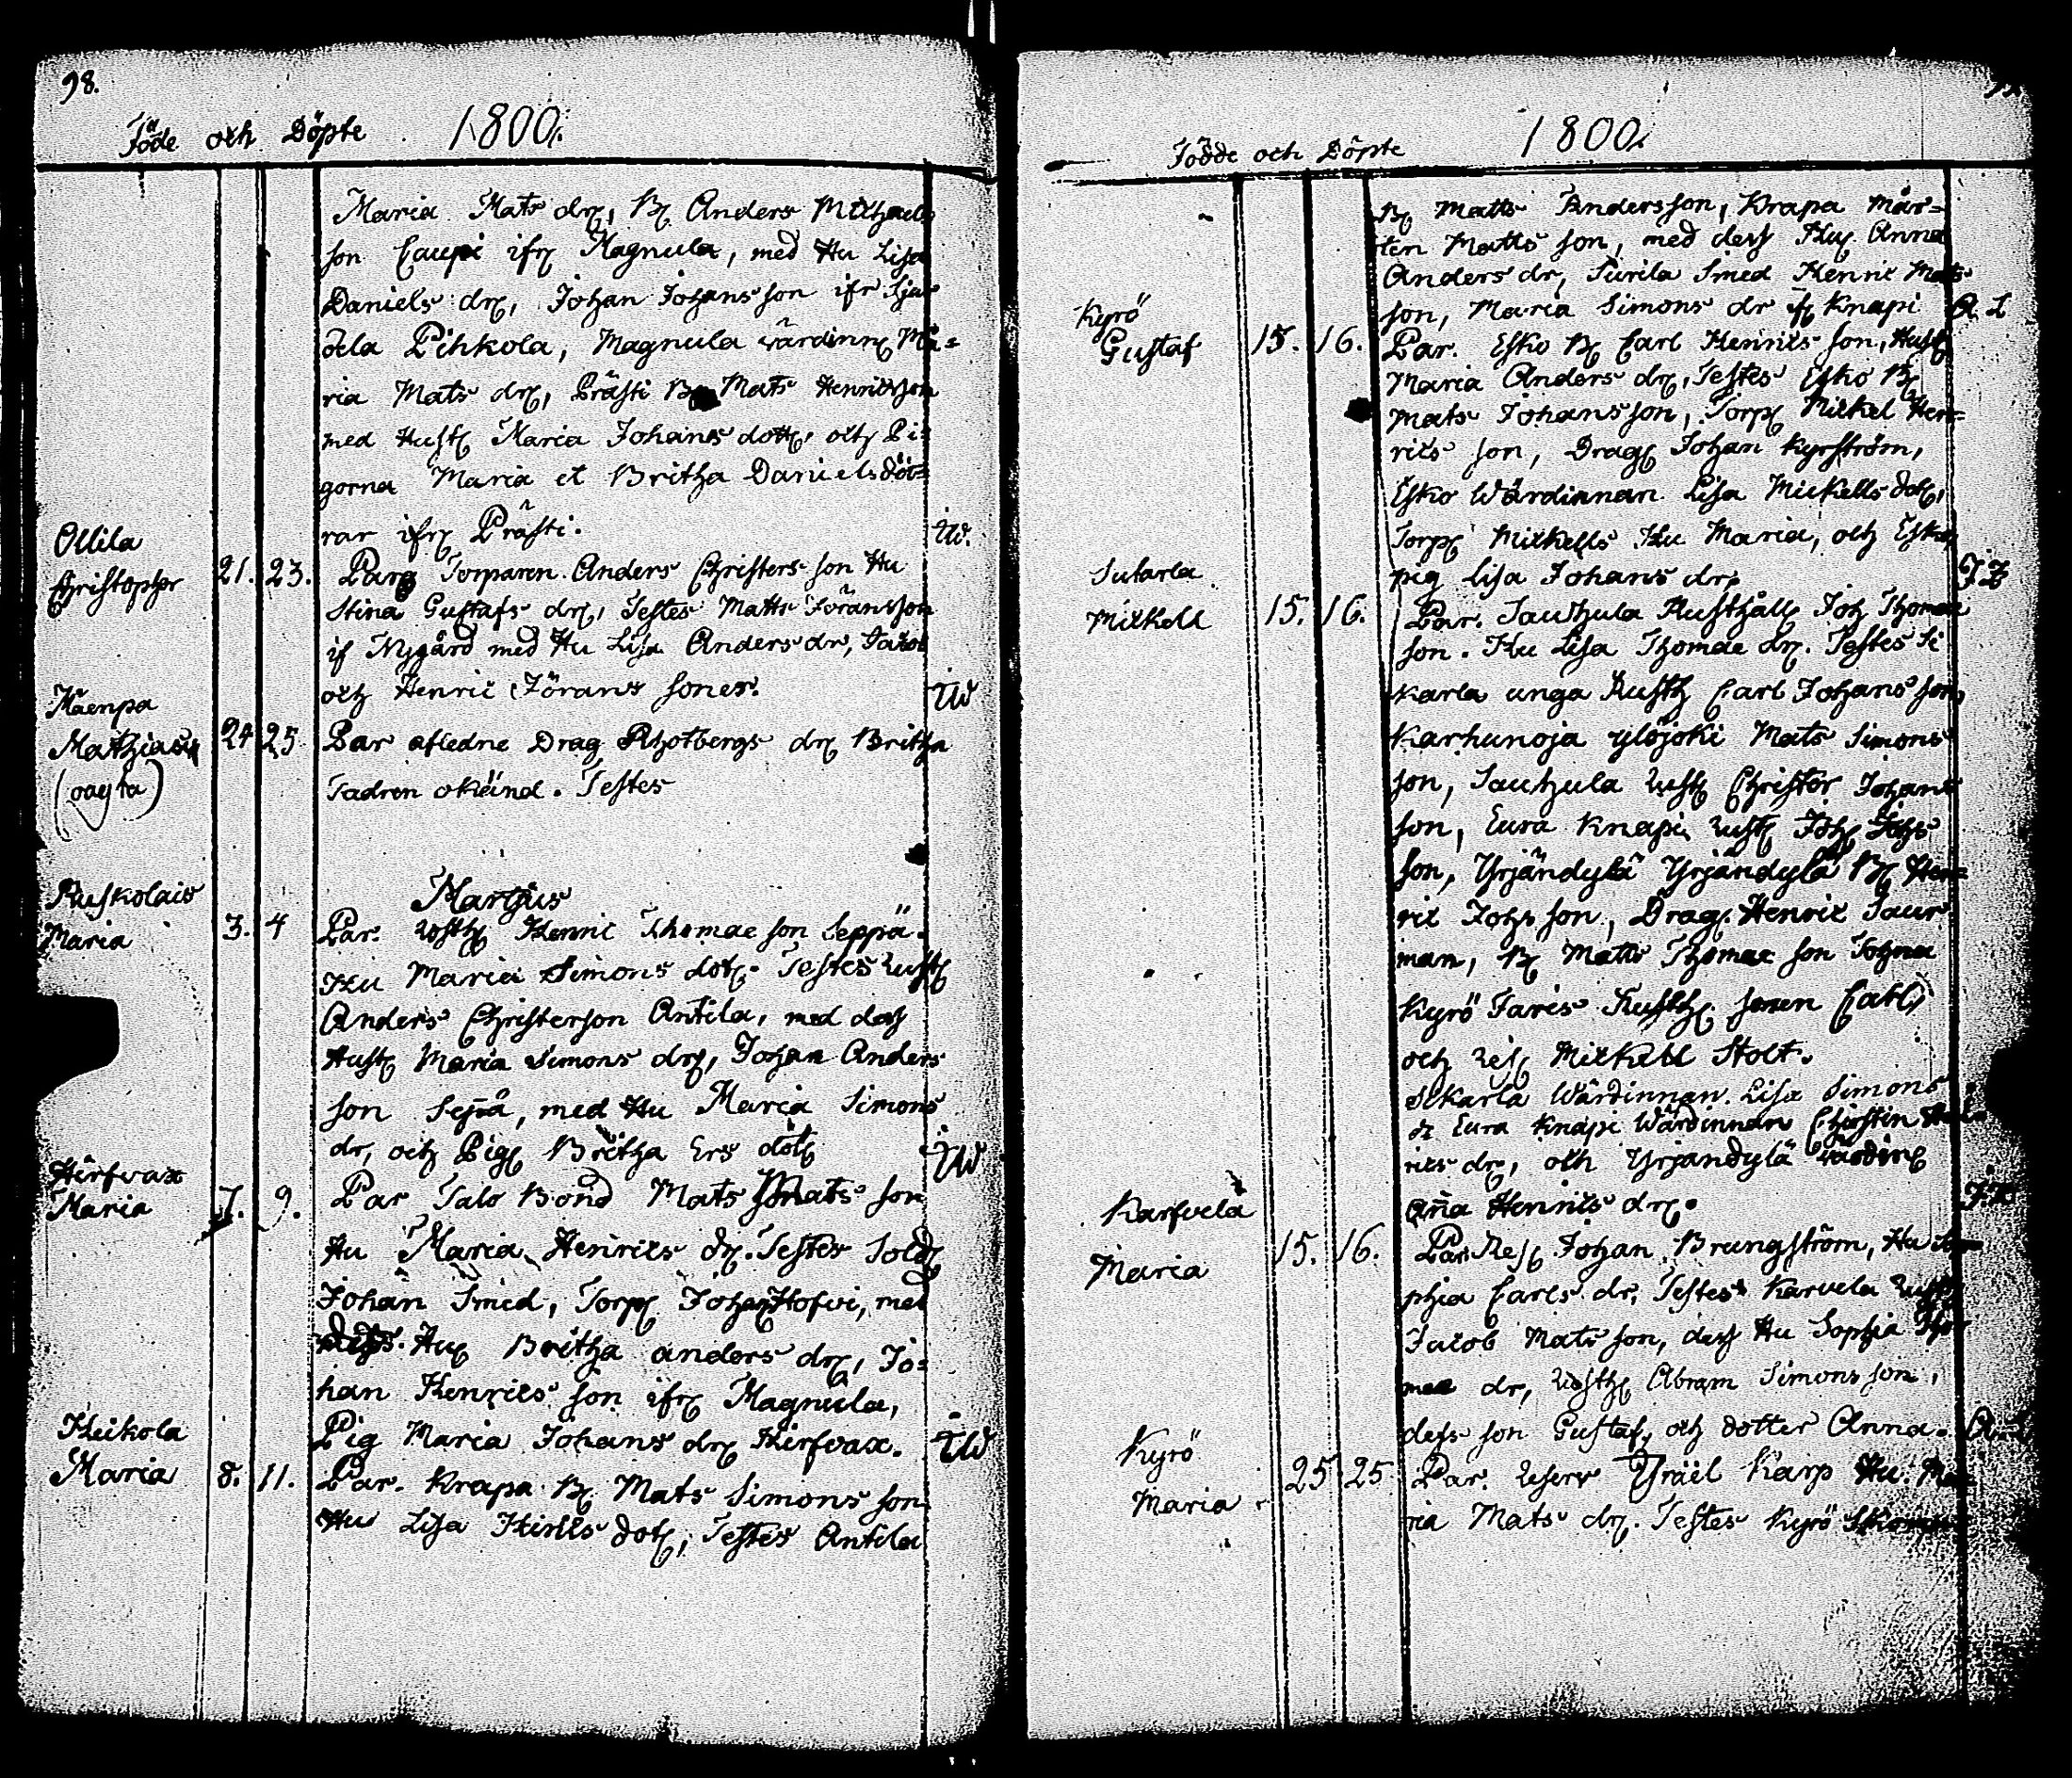 98.
Föde och Döpte 1800.
Maria Mats drꝭ, Bꝭ Anders Michaels
son Caupi ifrꝭ Magnula, med Hu Lisa
Daniels drꝭ, Johan Johans son ifr Sju
dela Pihkola, Magnula wärdinnꝭ Ma=
ria Mats drꝭ, Prästi Bꝭ Mats Henricsson
med Hustꝭ Maria Johans dottꝭ, och Pi=
gorna Maria et Britha Daniels döt=
rar ifrꝭ Prästi. IW.
Ollila
Christopher 21. 23. Parꝭ Torparen Anders Christers son Hu
Stina Gustafs drꝭ, Testes Matts Jöransson
if Nygård med Hu Lisa Anders dr, Jacob
och Henric Jörans söner. IW
Mäenpä
Mathias 24 25 Par afledne Drag Rhotbergs drꝭ Britha
(oägta) Fadren okänd. Testes
Martius
Ruskolais
Maria 3. 4 Par. Rosthꝭ Henric Thomae son Seppä.
Hu Maria Simons dotꝭ. Testes Rustꝭ
Anders Christerson Antila, med dess
Hustꝭ Maria Simons drꝭ, Johan Anders
son Sepä, med Hu Maria Simons
dr, och Pigꝭ Britha Ers dotꝭ IW
Hirfvax
Maria 7. 9. Par Talo Bond Mats Mats son
Hu Maria Henrics drꝭ. Testes Soldꝭ
Johan Smed, Torpꝭ Johan Hofvi, med
dess Huꝭ Britha anders drꝭ, Jo=
han Henrics son ifrꝭ Magnula,
Pig Maria Johans drꝭ Hirfvax. IW
Heikola
Maria 8. 11. Par. Krapa Bꝭ Mats Simons son
Hu Lisa Henrics dotꝭ, Testes Antila
Födde och Döpte 1800
Bꝭ Matts Andersson, Krapa Mår=
ten Matts son, med dess Huꝭ Anna
Anders dr, Turila Smed Henric Mats
son, Maria Simons dr ifꝭ Knapi A. L
Kyrö
Gustaf 15. 16. Par. Esko Bꝭ Carl Henrics son, Hustꝭ
Maria Anders drꝭ, Testes Esko Bꝭ
Mats Johansson, Torpꝭ Mickel Hen=
rics son, Dragꝭ Johan Kyrström,
Esko Wärdinnan Lisa Mickells dotꝭ,
Torpꝭ Mickells Hu Maria, och Esko
pig Lisa Johans drꝭ
Sikarla
Mickell 15. 16. Par. Sauhula Rusthållꝭ Joh Thomae
son. Hu Lisa Thomae drꝭ. Testes Si
karla unga Rusthꝭ Carl Johans son,
Karhunoja ylöjoki Mats Simons
son, Sauhula Rustꝭ Christer Johans
son, Eura Knapi Rustꝭ Johꝭ Johs
son, Yrjändylä Yrjändylä Bꝭ Hen=
ric Johs son, Dragꝭ Henric Saur
man, Bꝭ Matts Thomae son
Kyrö Faris Rusthꝭ sonen Carl,
och Resꝭ Mickell Stolt.
Sikarla Wärdinnan Lisa Simons
dr Eura Knapi Wärdinnan Christin Hen
rics dr, och Yrjandylä wärdinꝭ
Aña Henrics drꝭ.
Karfvela
Maria 15. 16. Par. Resꝭ Johan Brungström, Hu So
phia Carls dr, Testes Karvela Rustꝭ
Jacob Mats son, dess Hu Sophia Tho
mae dr, Rosthꝭ Abram Simons son,
dess son Gustaf, och dotter Anna. A L
Kyrö
Maria 25 25 Par. Reserv Ysräel Karp Hu. Ma
ria Mats drꝭ. Testes Kyrö